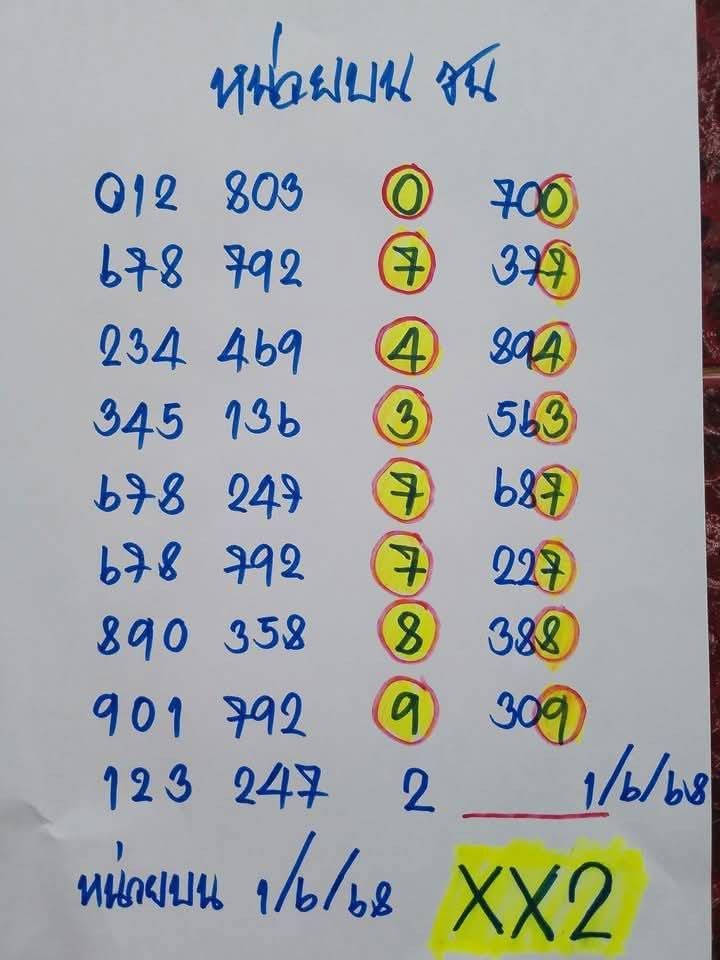 หน่วยบน ชน
012 803 0 700
678 792 7 377
234 469 4 894
345 136 3 563
678 247 7 687
678 792 7 227
890 358 8 388
901 792 9 309
123 247 2 1/6/68
หน่วยบน 1/6/68 XX2